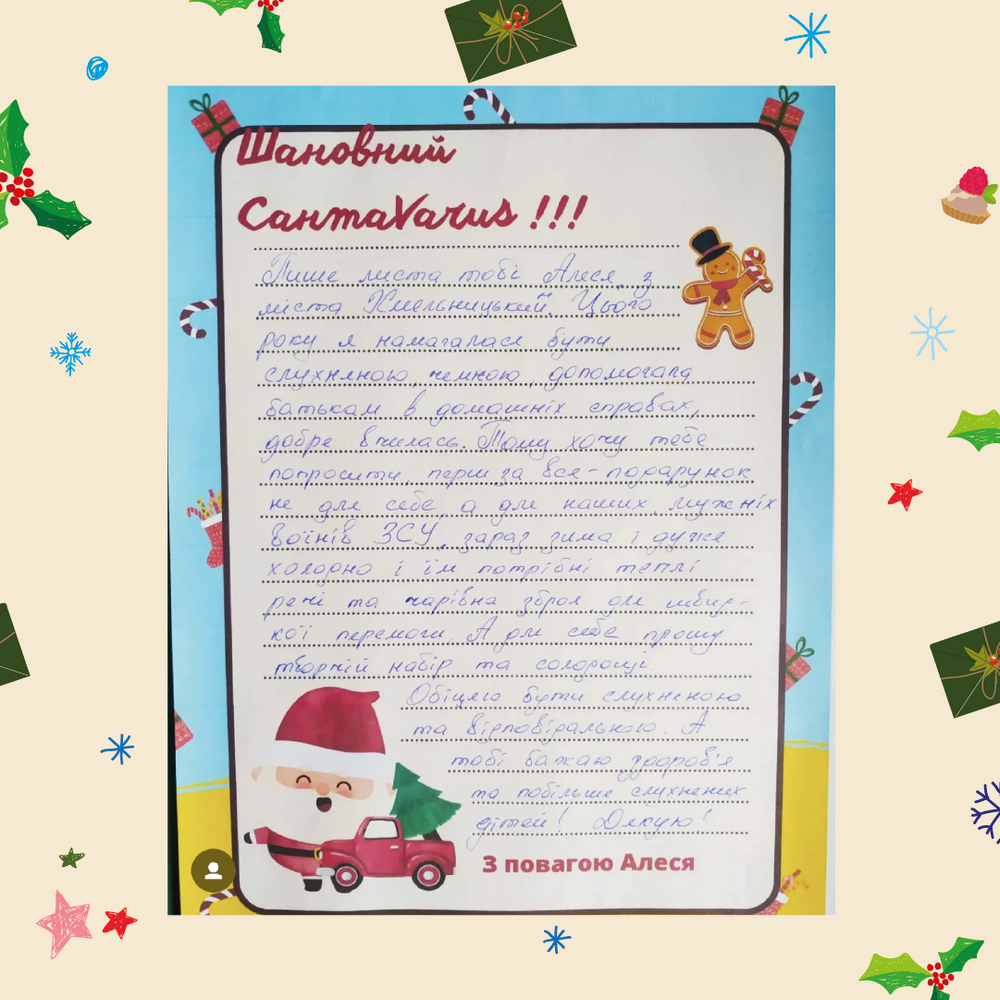 Шановний
СантаVarus !!!
Пише листа тобі Алеся, з
міста Хмельницький. Цього
року я намагалася бути
слухняною, чемною, допомагала
батькам в домашніх справах,
добре вчилась. Тому хочу тебе
попросити, перш за все - подарунок
не для себе, а для наших мужніх
воїнів ЗСУ, зараз зима і дуже
холодно і їм потрібні теплі
речі та чарівна зброя для швид-
кої перемоги. А для себе прошу
творчій набір та солодощі.
Обіцяю бути слухняною
та відповідальною. А
тобі бажаю здоров'я
та побільше слухняних
дітей! Дякую!
З повагою Алеся